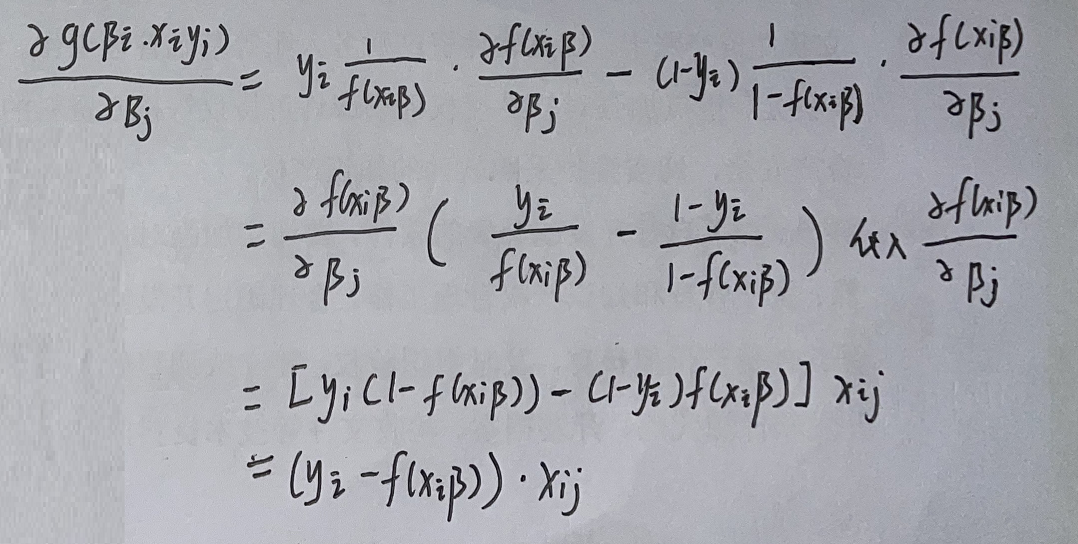 ∂g(βi.xiyi)/∂βj = yi 1/f(xiβ) · ∂f(xiβ)/∂βj - (1-yi) 1/(1-f(xiβ)) · ∂f(xiβ)/∂βj
= ∂f(xiβ)/∂βj ( yi/f(xiβ) - (1-yi)/(1-f(xiβ)) ) 代入 ∂f(xiβ)/∂βj
= [yi(1-f(xiβ))-(1-yi)f(xiβ)] xij
= (yi-f(xiβ))·xij